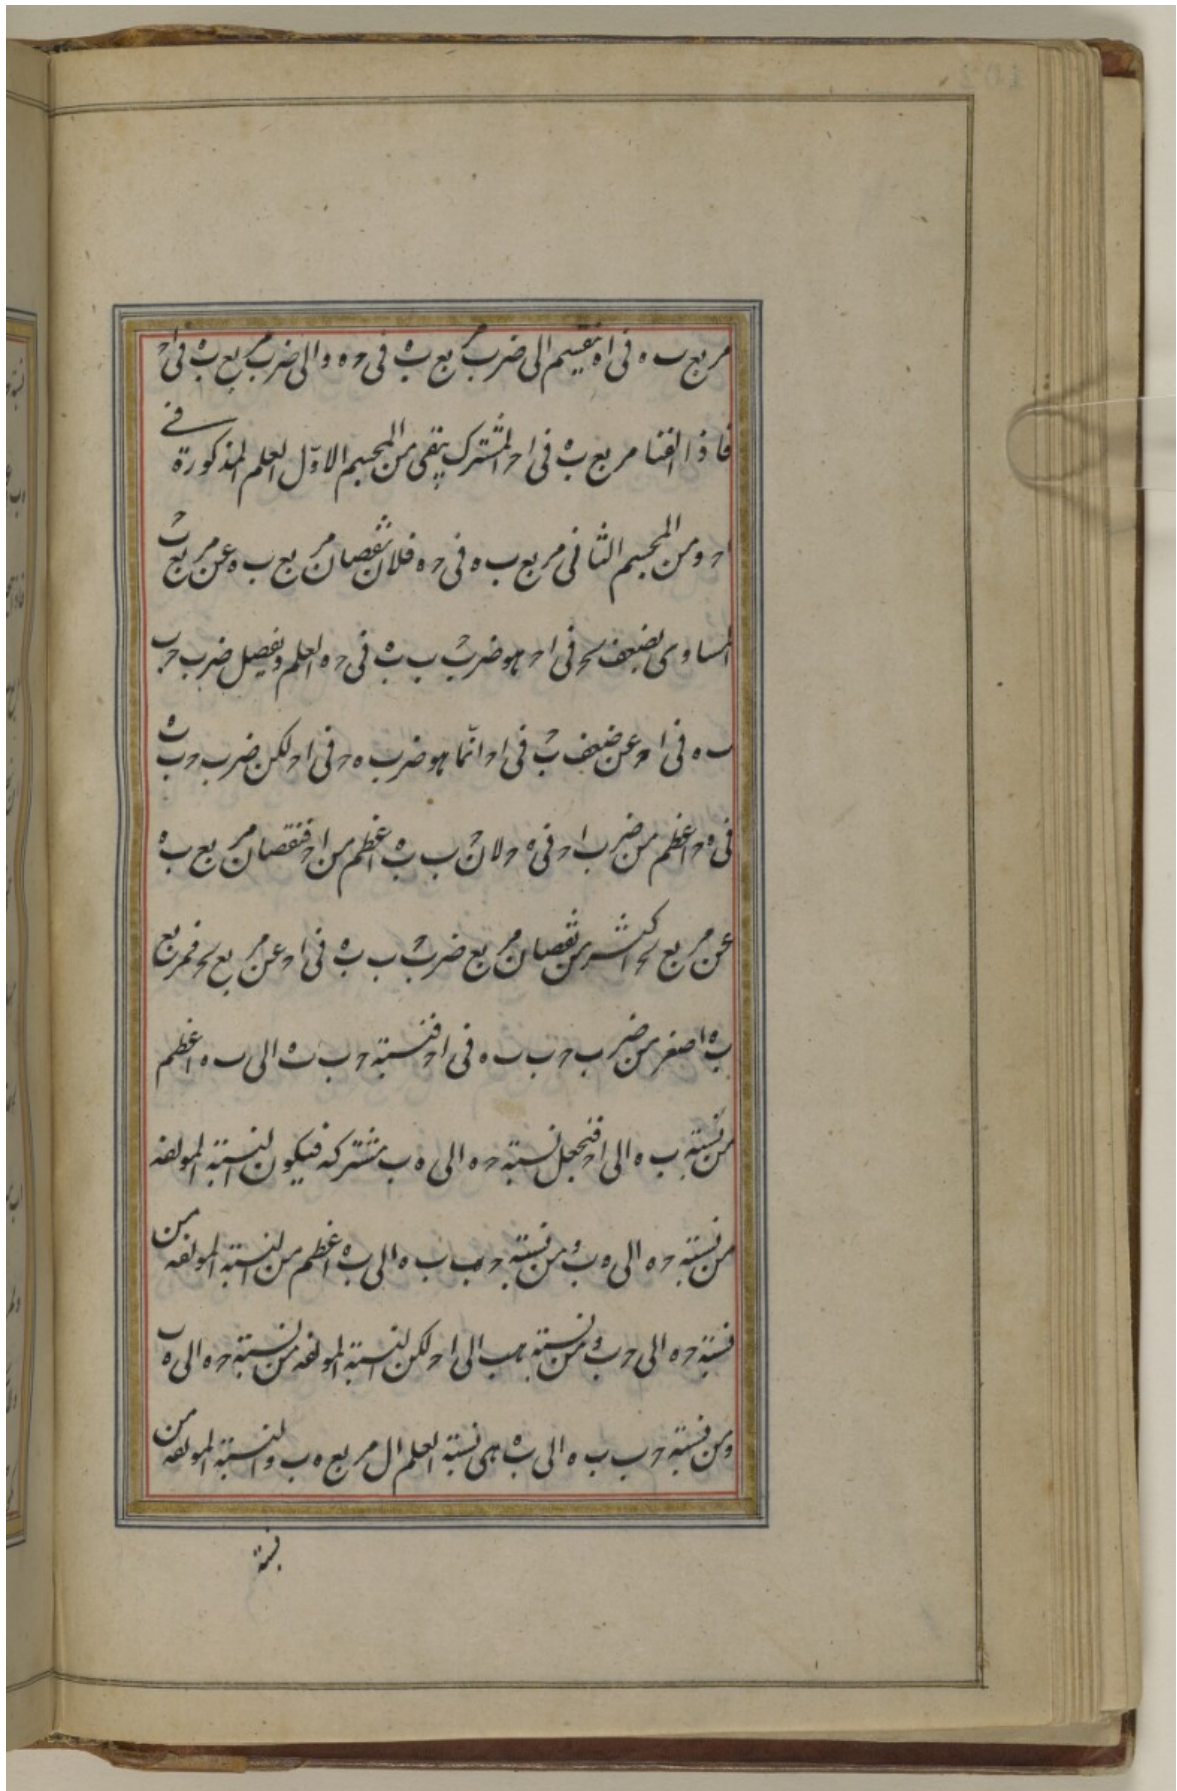 مربع ب ه فى اه ينقسم الى ضرب مربع ب ه فى ح ه و الى ضرب مربع ب ه فى اح
فاذا القينا مربع ب ه فى اح المشترك يبقى من المجسم الاول العلم المذكورة فى
اح ومن المجسم الثانى مربع ب ه فى ح ه فلان نقصان مربع ب ه عن مربع ب ح
المساوى لضعف فى اح هو ضرب ح ب ب ه فى ح ه العلم وتفصيل ضرب ح ب
ب ه فى اح عن ضعف ب ح فى اح انما هو ضرب ه ح فى اح لكن ضرب ح ب ب ه
فى ه ح اعظم من ضرب اح فى ه ح لان ح ب ب ه اعظم من اح فنقصان مربع ب ه
عن مربع اكثر من نقصان مربع ضرب ح ب ب ه فى اح عن مربع فمربع
ب ه اصغر من ضرب ح ب ب ه فى اح فنسبة ح ب ب ه الى ب ه اعظم
من نسبة ب ه الى اح فنجعل نسبة ح ه الى ه ب مشتركه فيكون النسبة المولفه
من نسبة ح ه الى ه ب و من نسبة ح ب ب ه الى ب ه اعظم من النسبة المولفه من
نسبة ح ه الى ح ب و من نسبة ه ب الى اح لكن النسبة المولفه من نسبة ح ه الى ه ب
ومن نسبة ح ب ب ه الى ب ه هى نسبة العلم ال مربع ه ب والنسبة المولفه من
نسبة